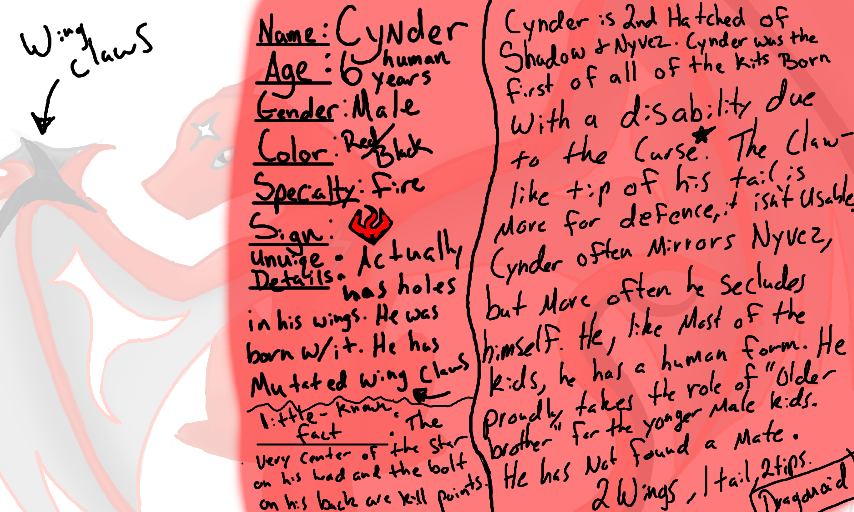 Wing
Claws
Name: Cynder
Age: 6 human
years
Gender: Male
Color: Red/
Black
Specalty: Fire
Sign:
Unuiqe
Details: Actually
has holes
in his wings. He was
born w/it. He has
Mutated wing claws
little-known
fact: The
very center of the star
on his head and the bolt
on his back are kill points.
Cynder is 2nd Hatched of
Shadow & Nyvez. Cynder was the
first of all of the kits Born
with a disability due
to the Curse★. The Claw-
like tip of his tail is
More for defence, it isn't Usable,
Cynder often Mirrors Nyvez,
but More often he secludes
himself. He, like Most of the
kids, he has a human form. He
proudly takes the role of "Older
brother" for the yonger Male kids.
He has Not found a Mate.
2 Wings, 1 tail, 2 tips.
Dragonoid